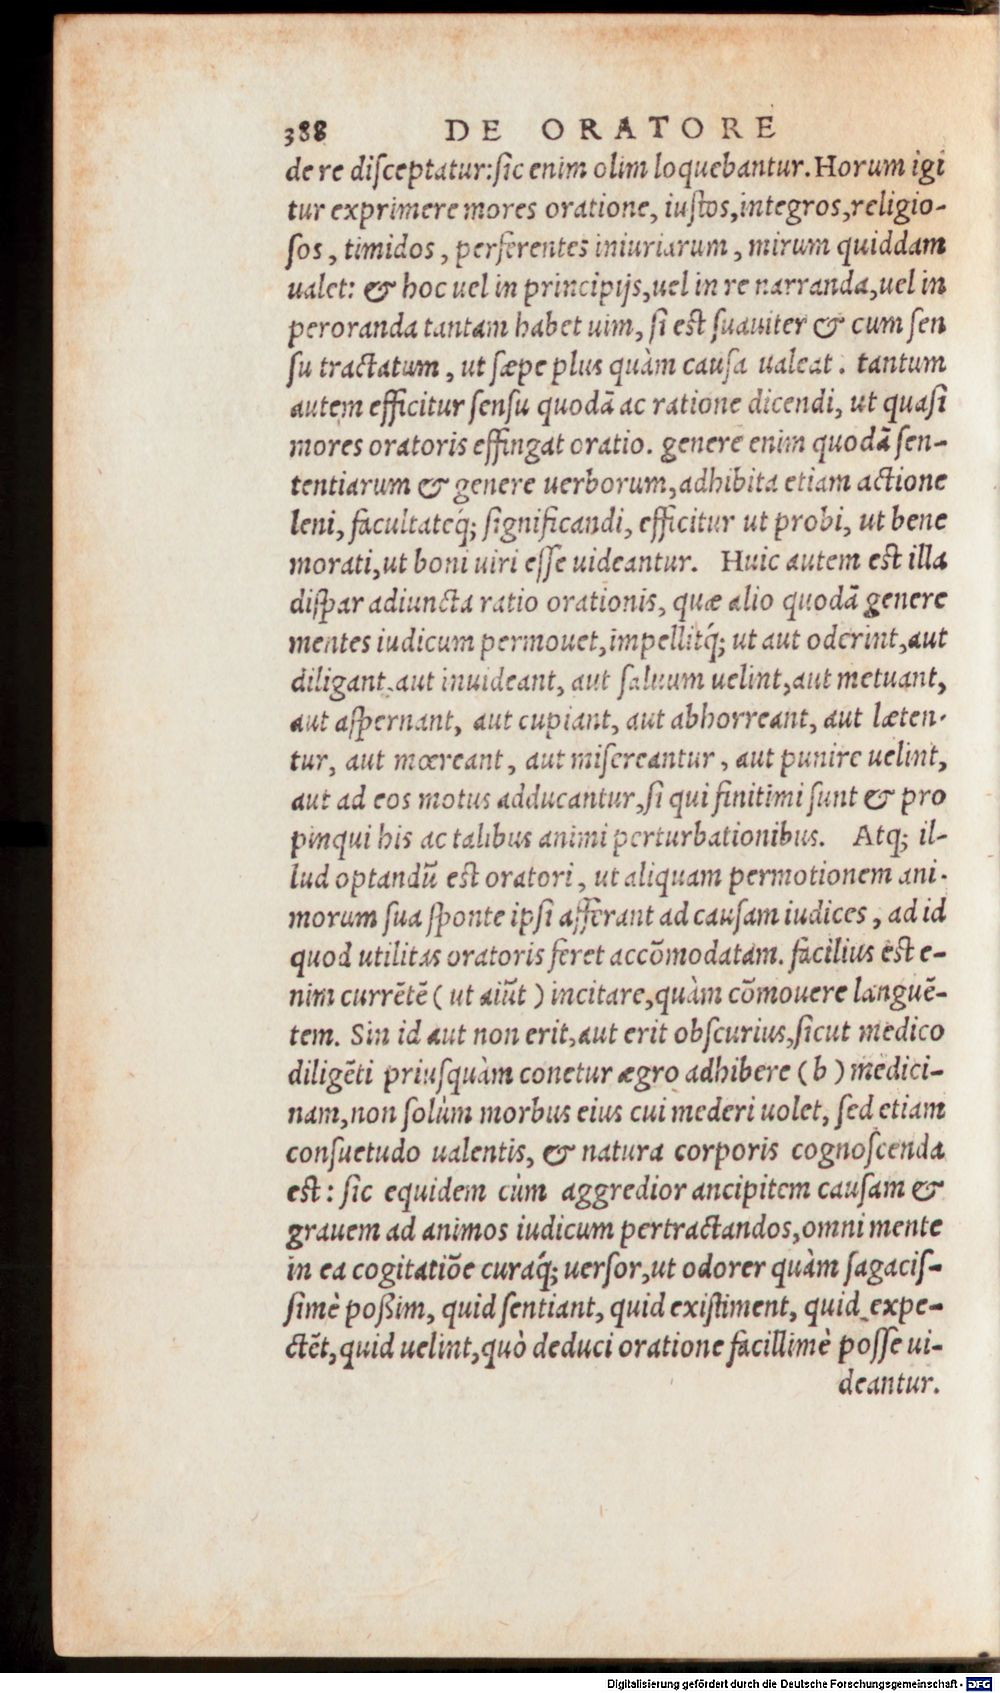 388 DE ORATORE
de re diſceptatur: ſic enim olim loquebantur. Horum igi
tur exprimere mores oratione, iuſtos, integros, religio-
ſos, timidos, perferentes iniuriarum, mirum quiddam
ualet: & hoc uel in principijs, uel in re narranda, uel in
peroranda tantam habet uim, ſi eſt ſuauiter & cum ſen
ſu tractatum, ut ſæpe plus quàm cauſa ualeat. tantum
autem efficitur ſenſu quodā ac ratione dicendi, ut quaſi
mores oratoris effingat oratio. genere enim quodā ſen-
tentiarum & genere uerborum, adhibita etiam actione
leni, facultateq́; ſignificandi, efficitur ut probi, ut bene
morati, ut boni uiri eſſe uideantur. Huic autem eſt illa
diſpar adiuncta ratio orationis, quæ alio quodā genere
mentes iudicum permouet, impellitq́; ut aut oderint, aut
diligant, aut inuideant, aut ſaluum uelint, aut metuant,
aut aſpernant, aut cupiant, aut abhorreant, aut læten-
tur, aut mœreant, aut miſereantur, aut punire uelint,
aut ad eos motus adducantur, ſi qui finitimi ſunt & pro
pinqui his ac talibus animi perturbationibus. Atq; il-
lud optandū eſt oratori, ut aliquam permotionem ani-
morum ſua ſponte ipſi afferant ad cauſam iudices, ad id
quod utilitas oratoris feret accōmodatam. facilius eſt e-
nim currētē ( ut aiūt ) incitare, quàm cōmouere languē-
tem. Sin id aut non erit, aut erit obſcurius, ſicut medico
diligēti priuſquàm conetur ægro adhibere ( b ) medici-
nam, non ſolùm morbus eius cui mederi uolet, ſed etiam
conſuetudo ualentis, & natura corporis cognoſcenda
eſt: ſic equidem cùm aggredior ancipitem cauſam &
grauem ad animos iudicum pertractandos, omni mente
in ea cogitatiōe curaq́; uerſor, ut odorer quàm ſagaciſ-
ſimè poßim, quid ſentiant, quid exiſtiment, quid expe-
ctēt, quid uelint, quò deduci oratione facillimè poſſe ui-
deantur.
Digitalisierung gefördert durch die Deutsche Forschungsgemeinschaft - DFG